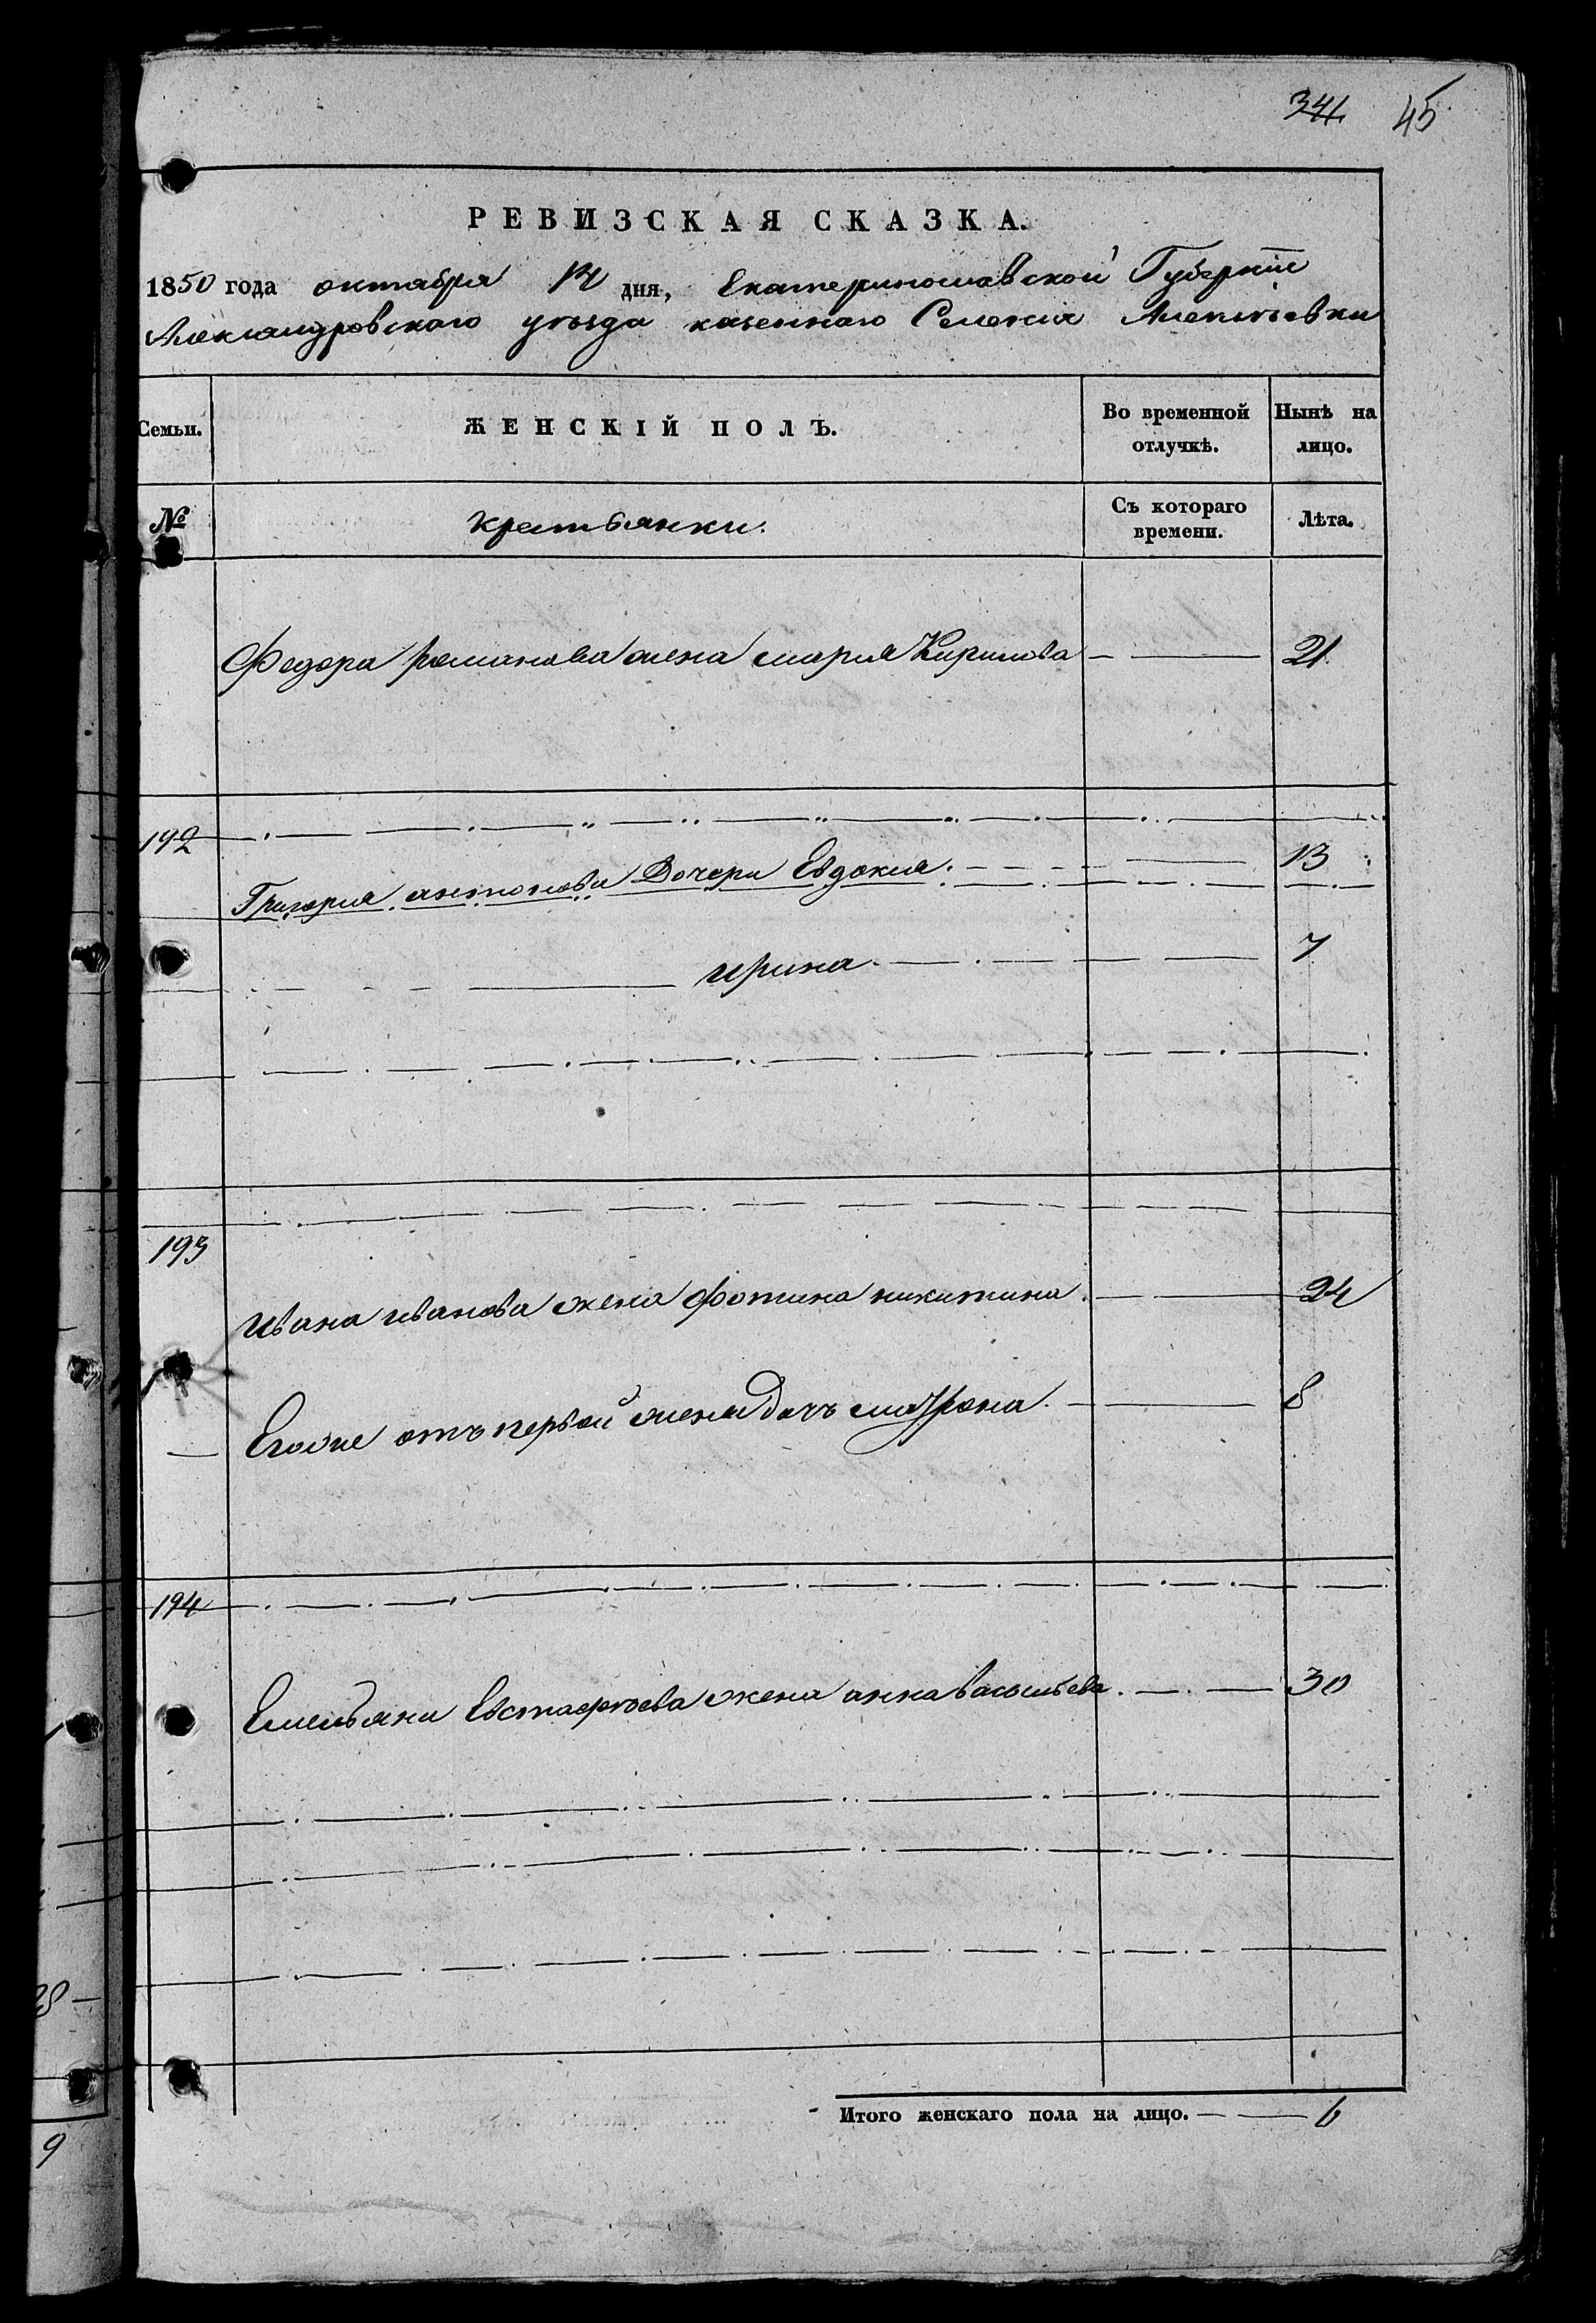 341 45
РЕВИЗСКАЯ СКАЗКА.
1850 года октября дня, Екатеринославской Губерніи
Александровскаго уѣзда казеннаго Селенія Алексѣевки
Семьи. ЖЕНСКІЙ ПОЛЪ. Во временной отлучкѣ. Нынѣ на лицо.
№ крестьянки. Съ котораго времени. Лѣта.
Федора романова жена марья Кирилова 21
192
Григория антонова Дочери Евдокия 13
ирина 7
193
ивана иванова жена фотина никитина 24
Егоже отъ первой жены Дочь матрона 8
194
Емельяна Евстафѣева жена анна васильева 30
28
9
Итого женскаго пола на лицо. 6